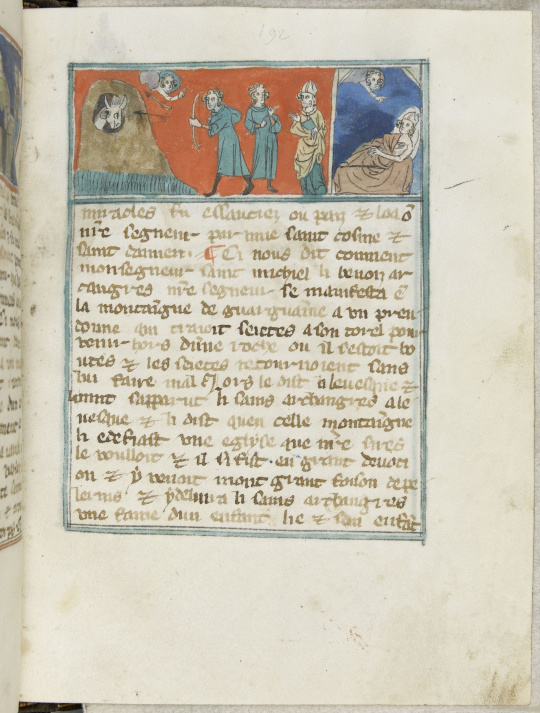 192
miracles fu essauciez ou pay & loe õ
nr̃e segneur par mie saint cosme &
saint damien. ¶ Ci nous dit comment
monsegneur saint michiel li benoit ar
cangres nr̃e segneur se manifesta ẽ
la montaingne de guarguaine a un pren
donne qui traioit seietes a son torel pour
venir hors dune roche ou il sestoit bo
utes & les seietes retournoient sans
lui faire mal lors le dist a levesque &
saint sapparut li sains archangres a le
vesque & li dist quen celle montaingne
li edefiast une eglyse que nr̃e sires
le vouloit & il si fist. en grant devoti
on & y venoit mont grant foison de pe
lerins & y delivra li sains archangres
une fame dun enfant lie & son enfãt